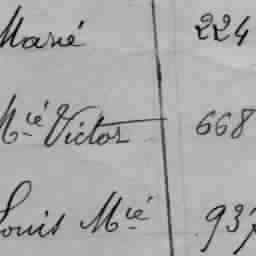 Marié 224
Mié Victor 668
Louis Mié 937